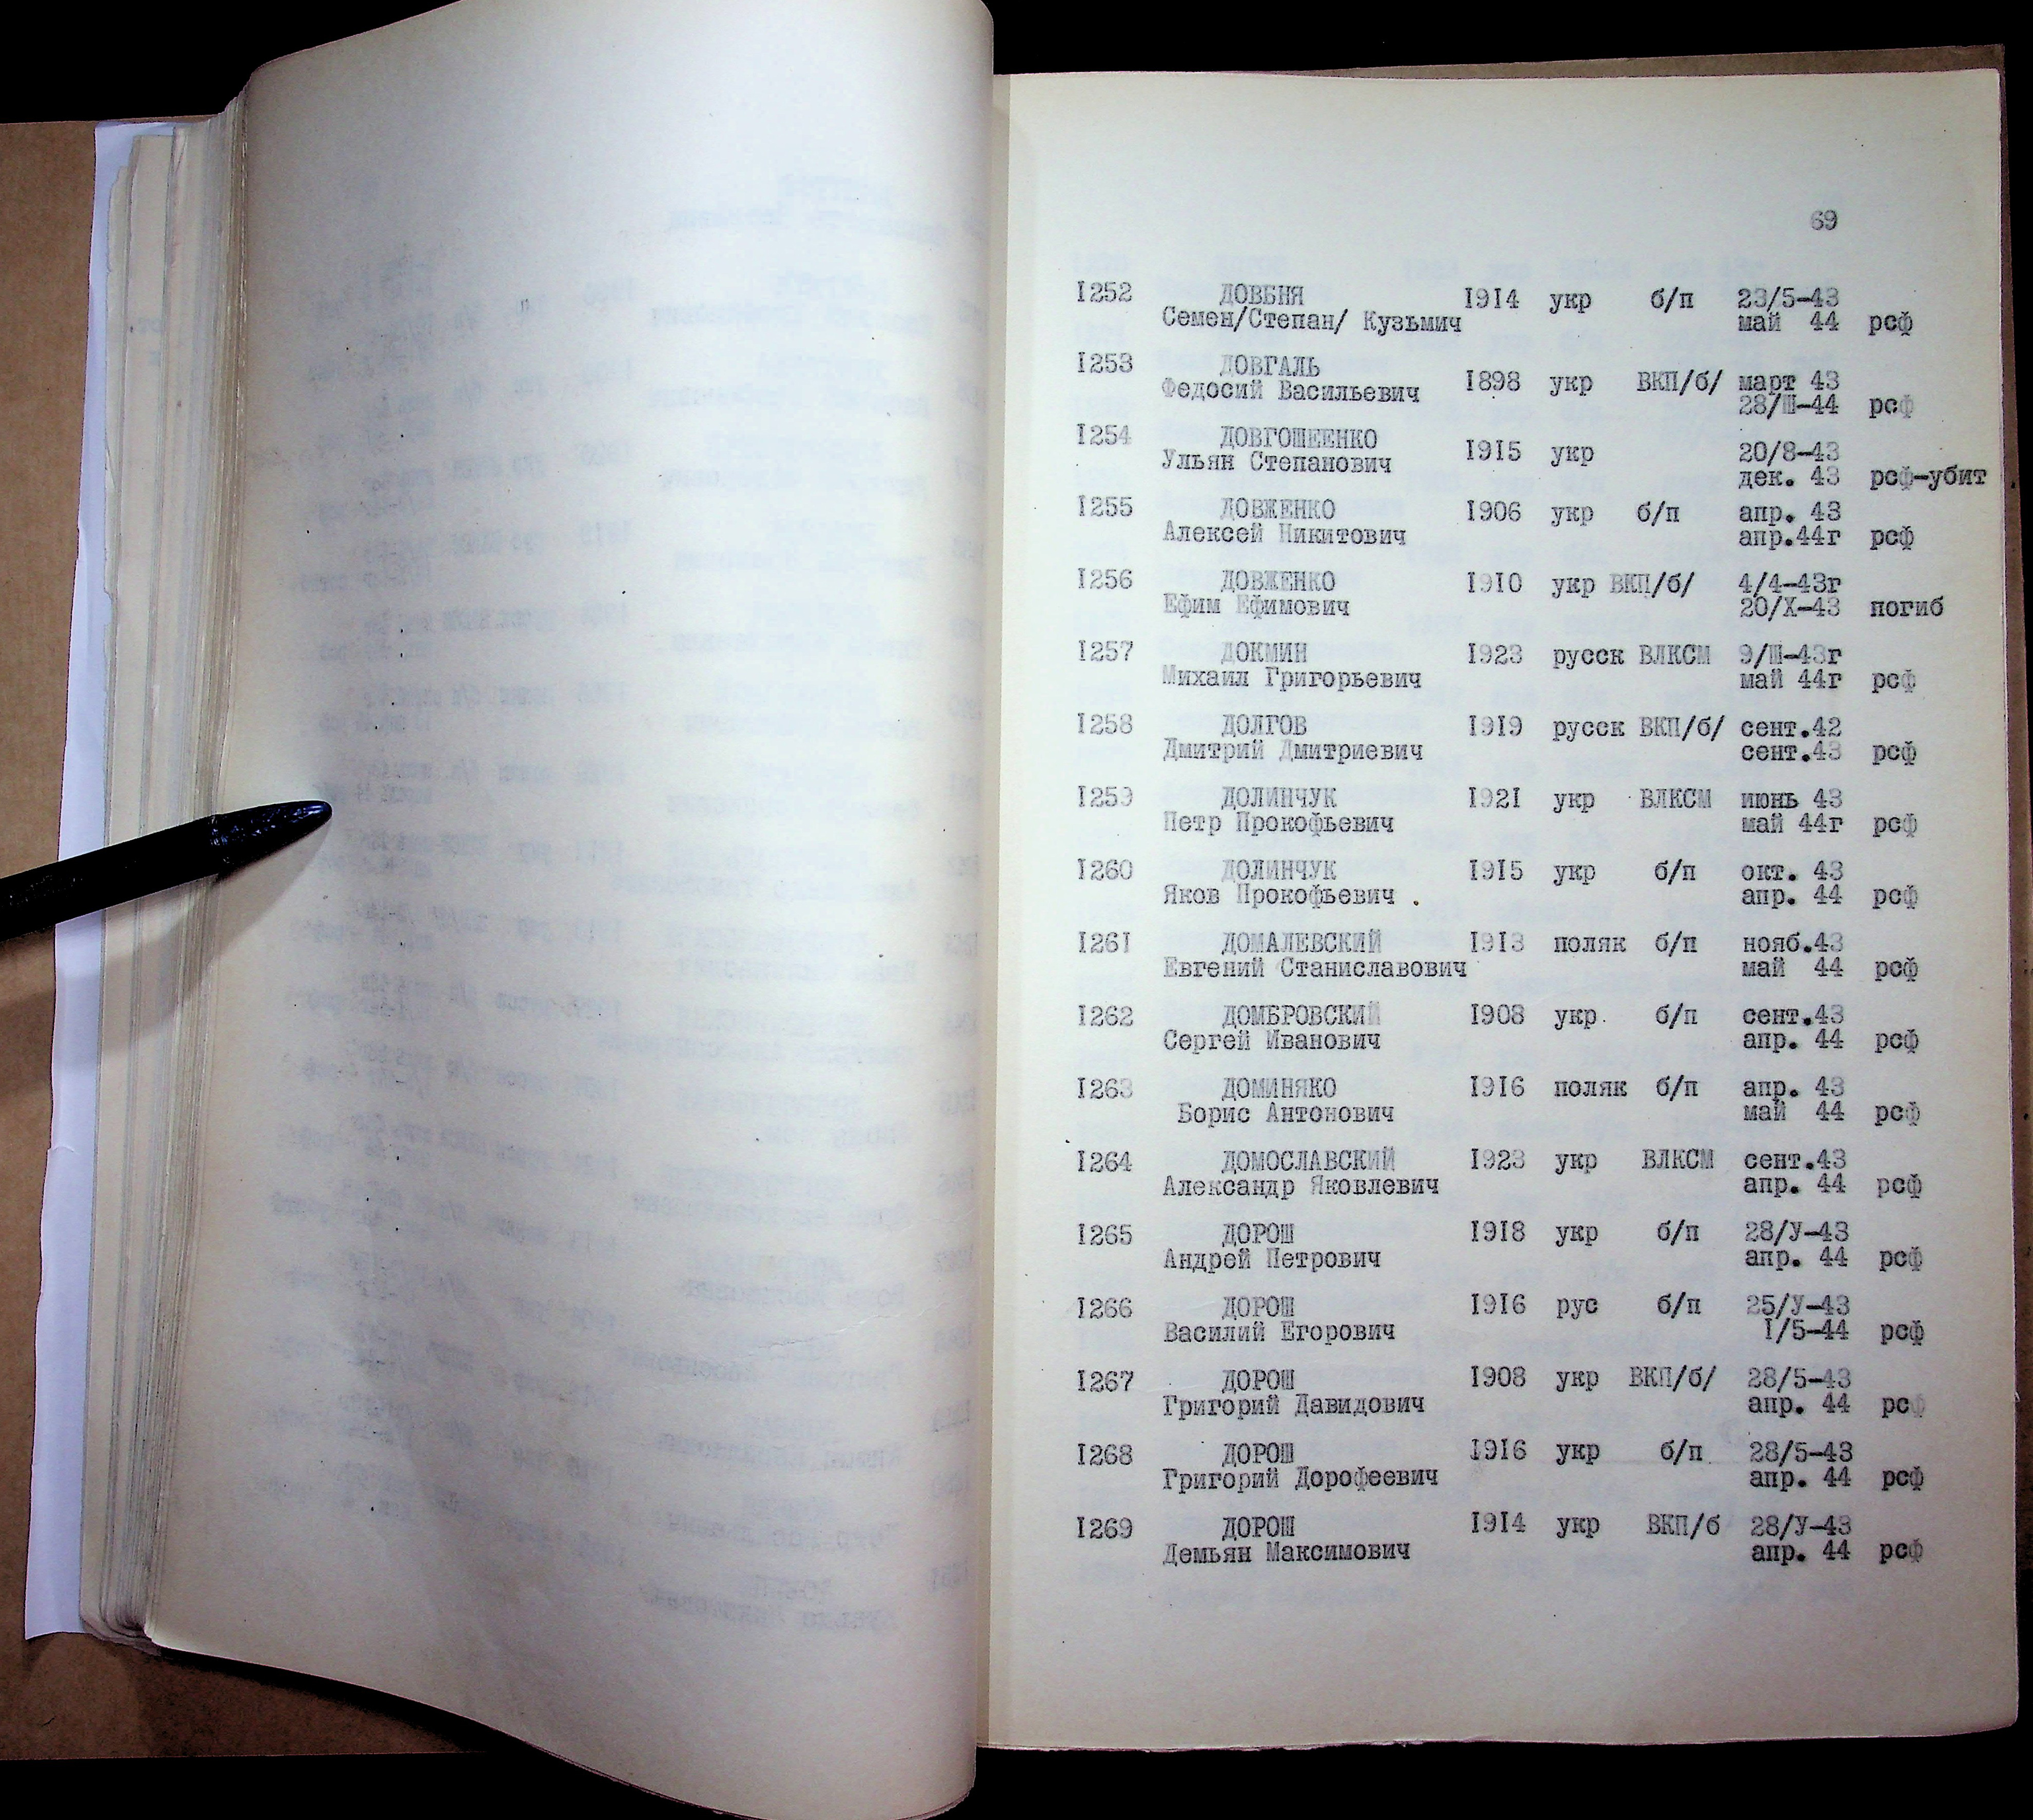 69
I252 ДОВБНЯ I9I4 укр б/п 23/5-43
Семен/Степан/ Кузьмич май 44 рсф
I253 ДОВГАЛЬ
Федосий Васильевич I898 укр ВКП/б/ март 43
28/Ш-44 рсф
I254 ДОВГОШЕЕНКО
Ульян Степанович I9I5 укр 20/8-43
дек. 43 рсф-убит
I255 ДОВЖЕНКО I906 укр б/п апр. 43
Алексей Никитович апр.44г рсф
I256 ДОВЖЕНКО I9I0 укр ВКП/б/ 4/4-43г
Ефим Ефимович 20/X-43 погиб
I257 ДОКМИН I923 русск ВЛКСМ 9/Ш-43г
Михаил Григорьевич май 44г рсф
I258 ДОЛГОВ I9I9 русск ВКП/б/ сент.42
Дмитрий Дмитриевич сент.43 рсф
I259 ДОЛИНЧУК I92I укр ВЛКСМ июнь 43
Петр Прокофьевич май 44г рсф
I260 ДОЛИНЧУК I9I5 укр б/п окт. 43
Яков Прокофьевич апр. 44 рсф
I26I ДОМАЛЕВСКИЙ I9I3 поляк б/п нояб.43
Евгений Станиславович май 44 рсф
I262 ДОМБРОВСКИЙ I908 укр. б/п сент.43
Сергей Иванович апр. 44 рсф
I263 ДОМИНЯКО I9I6 поляк б/п апр. 43
Борис Антонович май 44 рсф
I264 ДОМОСЛАВСКИЙ I923 укр ВЛКСМ сент.43
Александр Яковлевич апр. 44 рсф
I265 ДОРОШ I9I8 укр б/п 28/У-43
Андрей Петрович апр. 44 рсф
I266 ДОРОШ I9I6 рус б/п 25/У-43
Василий Егорович I/5-44 рсф
I267 ДОРОШ I908 укр ВКП/б/ 28/5-43
Григорий Давидович апр. 44 рсф
I268 ДОРОШ I9I6 укр б/п 28/5-43
Григорий Дорофеевич апр. 44 рсф
I269 ДОРОШ I9I4 укр ВКП/б 28/У-43
Демьян Максимович апр. 44 рсф